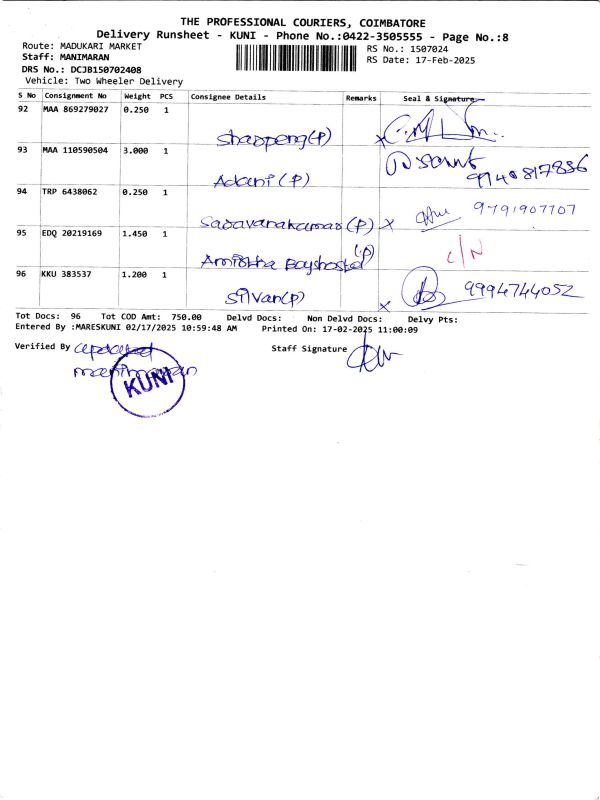 THE PROFESSIONAL COURIERS, COIMBATORE
Delivery Runsheet - KUNI - Phone No.:0422-3505555 - Page No.:8
Route: MADUKARI MARKET
RS No.: 1507024
Staff: MANIMARAN
RS Date: 17-Feb-2025
DRS No.: DCJB150702408
Vehicle: Two Wheeler Delivery
S No Consignment No Weight PCS Consignee Details Remarks Seal & Signature
92 MAA 869279027 0.250 1
93 MAA 110590504 3.000 1 Adani (P) 9740817886
94 TRP 6438062 0.250 1 Saravanakumar (P) X 9791907707
95 EDQ 20219169 1.450 1 (P) C/N
96 KKU 383537 1.200 1 Silvan (P) X 9994744052
Tot Docs: 96 Tot COD Amt: 750.00 Delvd Docs: Non Delvd Docs: Delvy Pts:
Entered By :MARESKUNI 02/17/2025 10:59:48 AM Printed On: 17-02-2025 11:00:09
Verified By updated Staff Signature
manimaran
KUNI